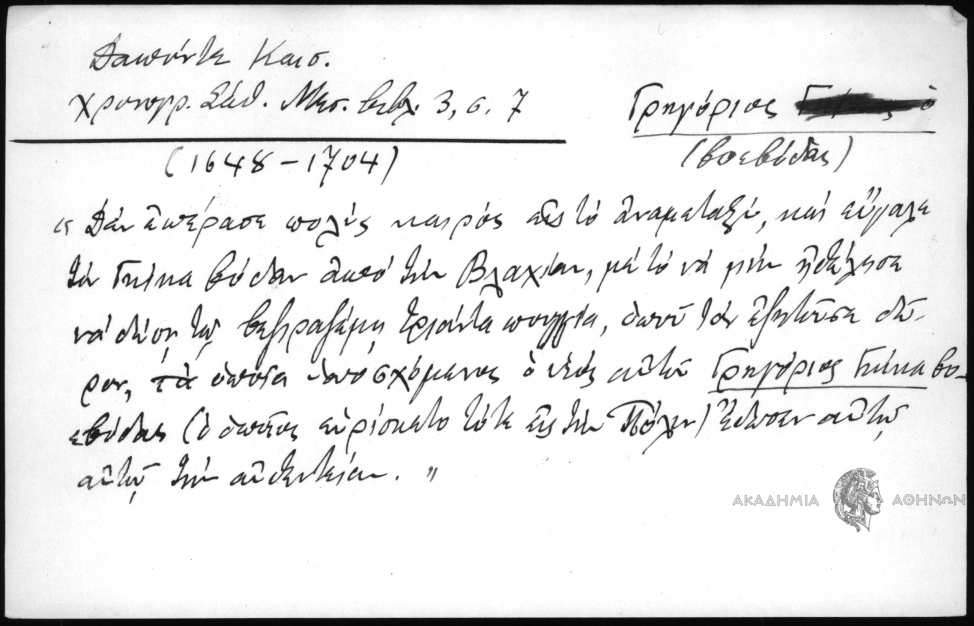 Δαπόντε Καισ.
χρονογρ. Σάθ. Μεσ. βιβλ. 3, σ. 7
Γρηγόριος ὁ
(βοεβόδας)
(1648-1704)
"Δὲν ἐπέρασε πολὺς καιρὸς εἰς τὸ ἀναμεταξύ, καὶ εὔγαλε
τὸν Γκίκα βόδαν ἀπὸ τὴν Βλαχίαν, μὲ τὸ νὰ μὴν ἠθέλησε
νὰ δώσῃ τῷ βεζιραζέμῃ τριάντα πουγγία, ὁποῦ τὸν ἐζητοῦσε δῶ-
ρον, τὰ ὁποῖα ὑποσχόμενος ὁ υἱὸς αὐτοῦ Γρηγόριος Γκίκα βο-
εβόδας (ὁ ὁποῖος εὑρίσκετο τότε εἰς τὴν Πόλιν) ἔδωσαν αὐτῷ
αὐτῷ τὴν αὐθεντείαν."
ΑΚΑΔΗΜΙΑ ΑΘΗΝΩΝ